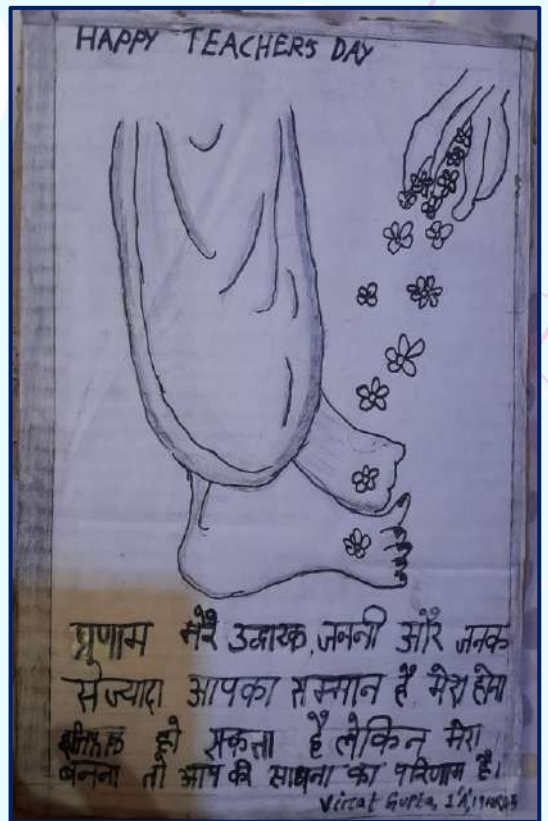 HAPPY TEACHERS DAY
प्रणाम मेरे उद्धारक, जननी और जनक
से ज्यादा आपका सम्मान है मेरा होना
हो सकता है लेकिन मेरा
बनना तो आप की साधना का परिणाम है।
Virat Gupta,